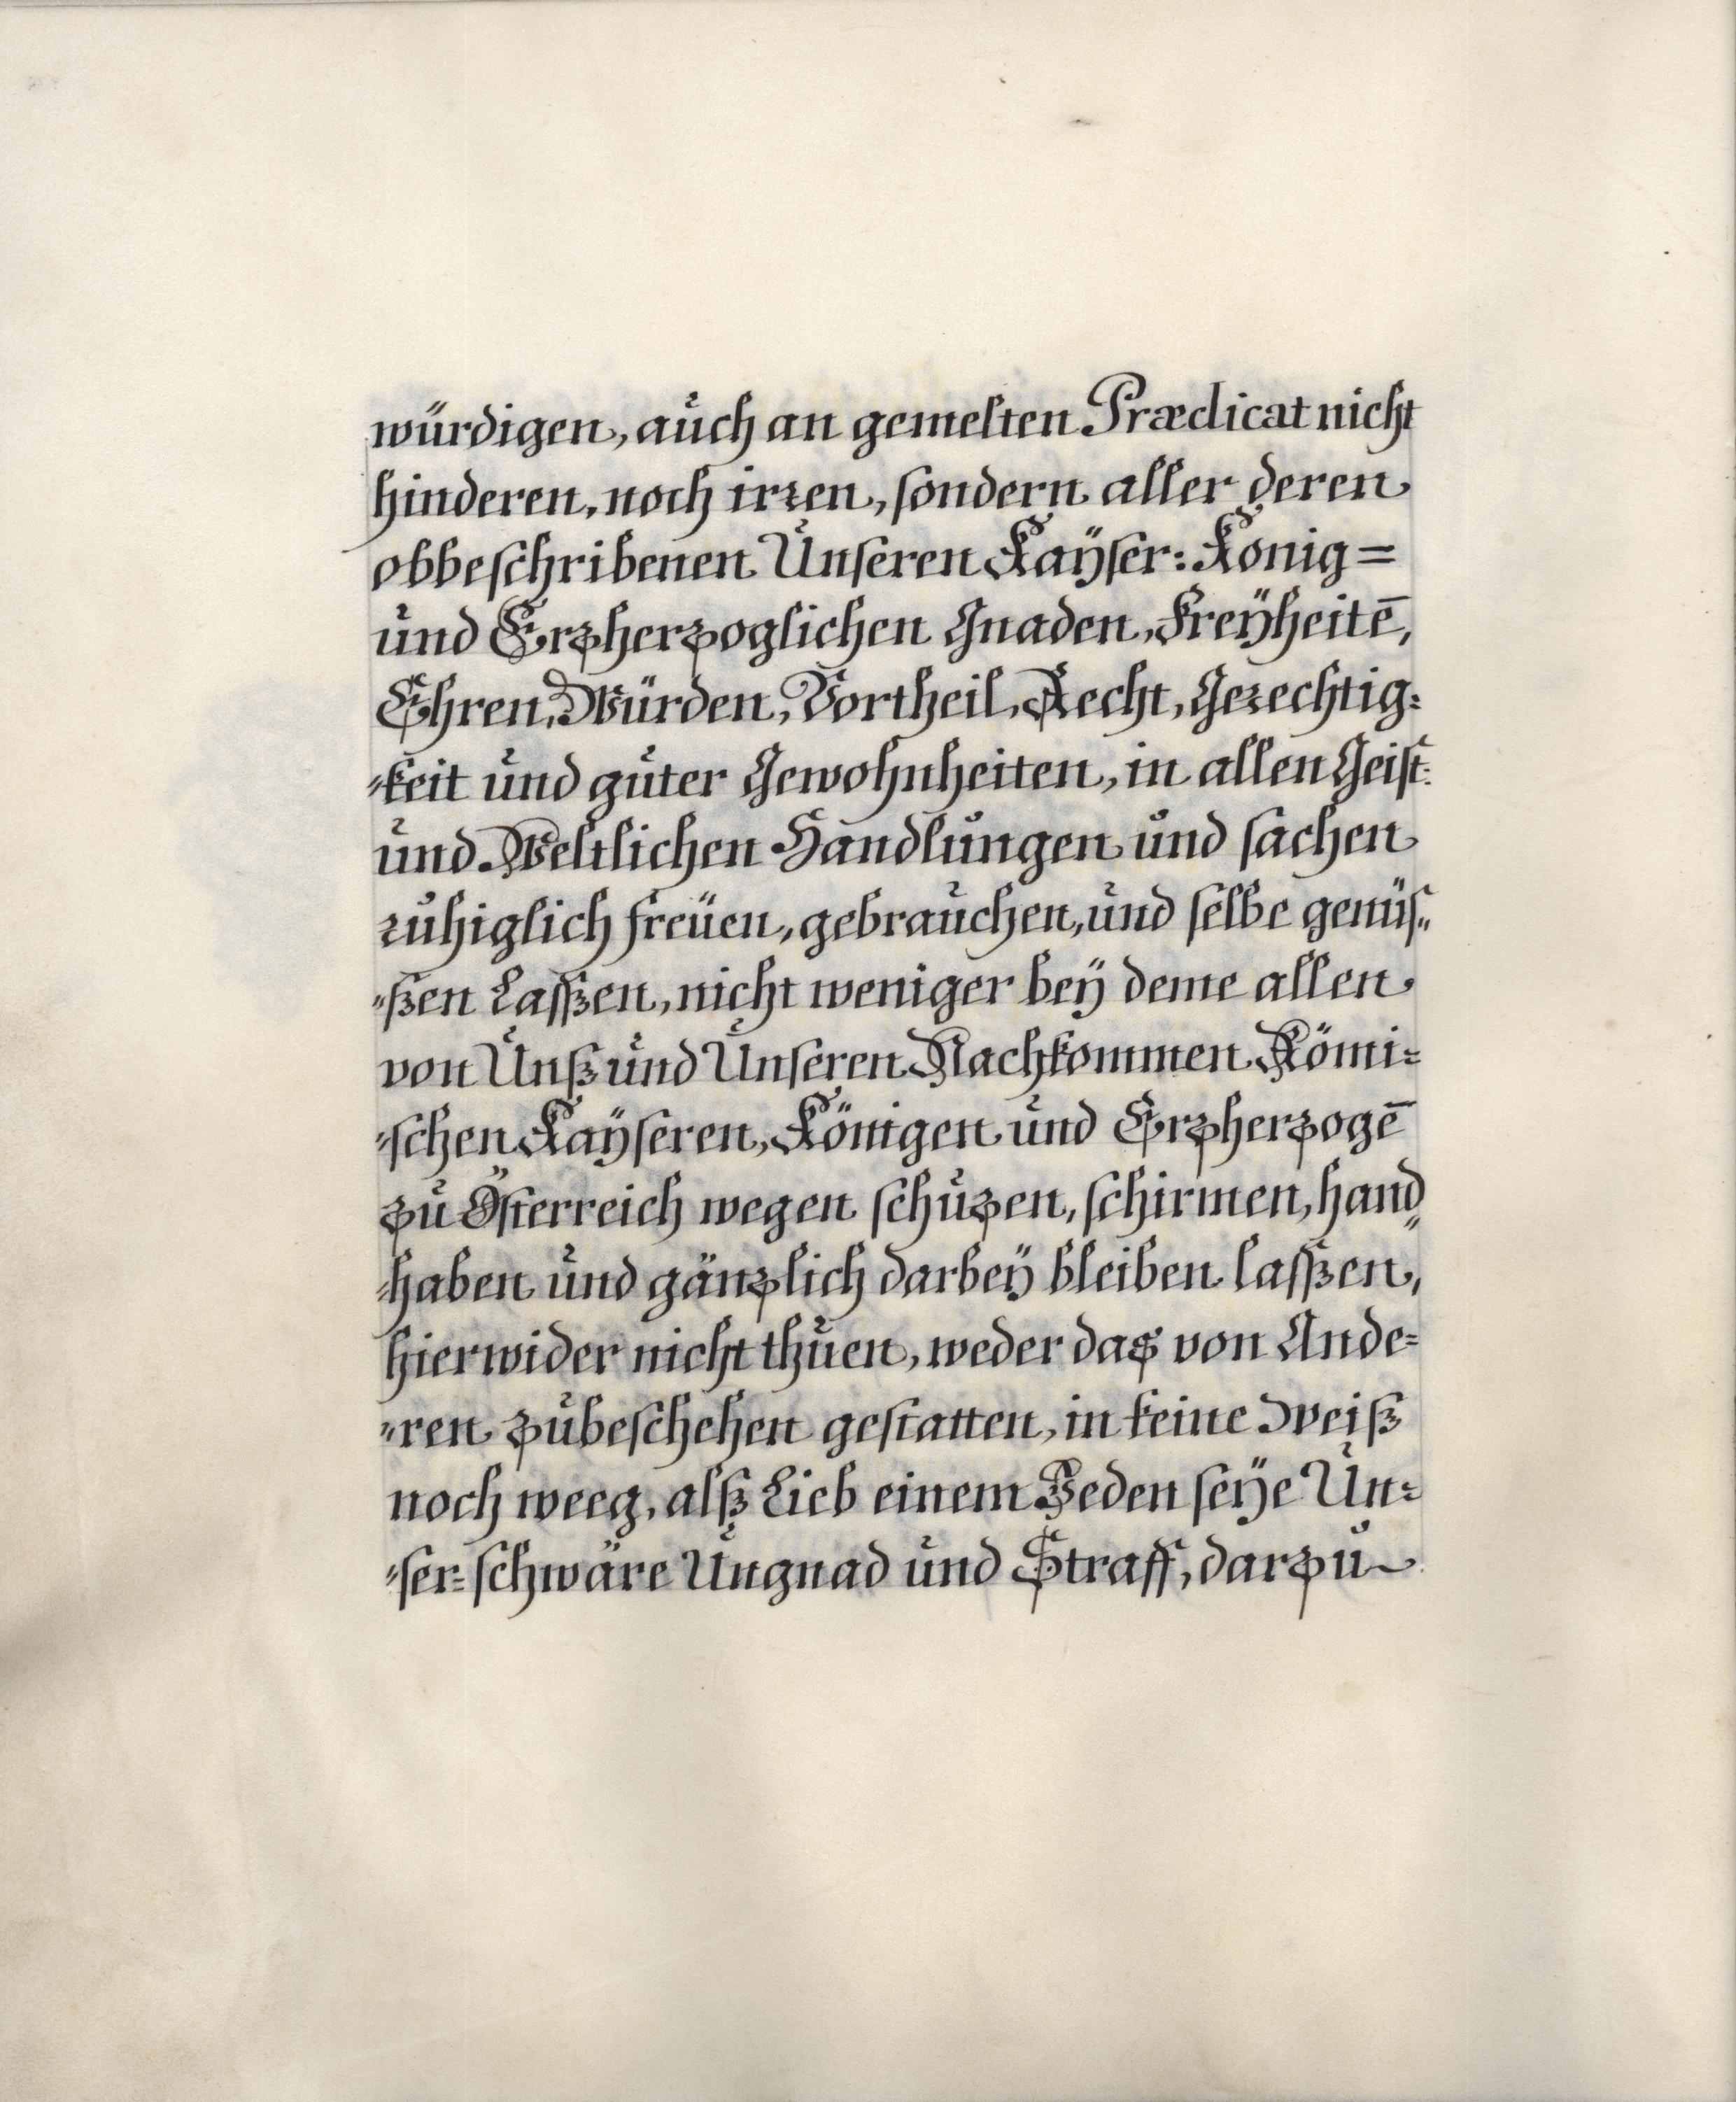 würdigen, auch an gemelten Prædicat nicht
hinderen, noch irren, sondern aller deren
obbeschribenen Unseren Kaÿser: König=
und Erzherzoglichen Gnaden, Freÿheitē,
Ehren, Würden, Vortheil, Recht, Gerechtig=
"keit und guter Gewohnheiten, in allen Geist:
und Weltlichen Handlungen und sachen
ruhiglich freüen, gebrauchen, und selbe genüs"
"ßen Lasßen, nicht weniger beÿ deme allen
von Unß und Unseren Nachkommen Römi=
"schen Kaÿseren, Königen und Erzherzogē
zu Österreich wegen schuzen, schirmen, hand"
"haben und gänzlich darbeÿ bleiben lasßen,
hierwider nicht thuen, weder das von Ande=
"ren zubeschehen gestatten, in keine Weiß
noch weeg, alß Lieb einem Jeden seÿe Un=
"ser= schwäre Ungnad und Straff, darzu